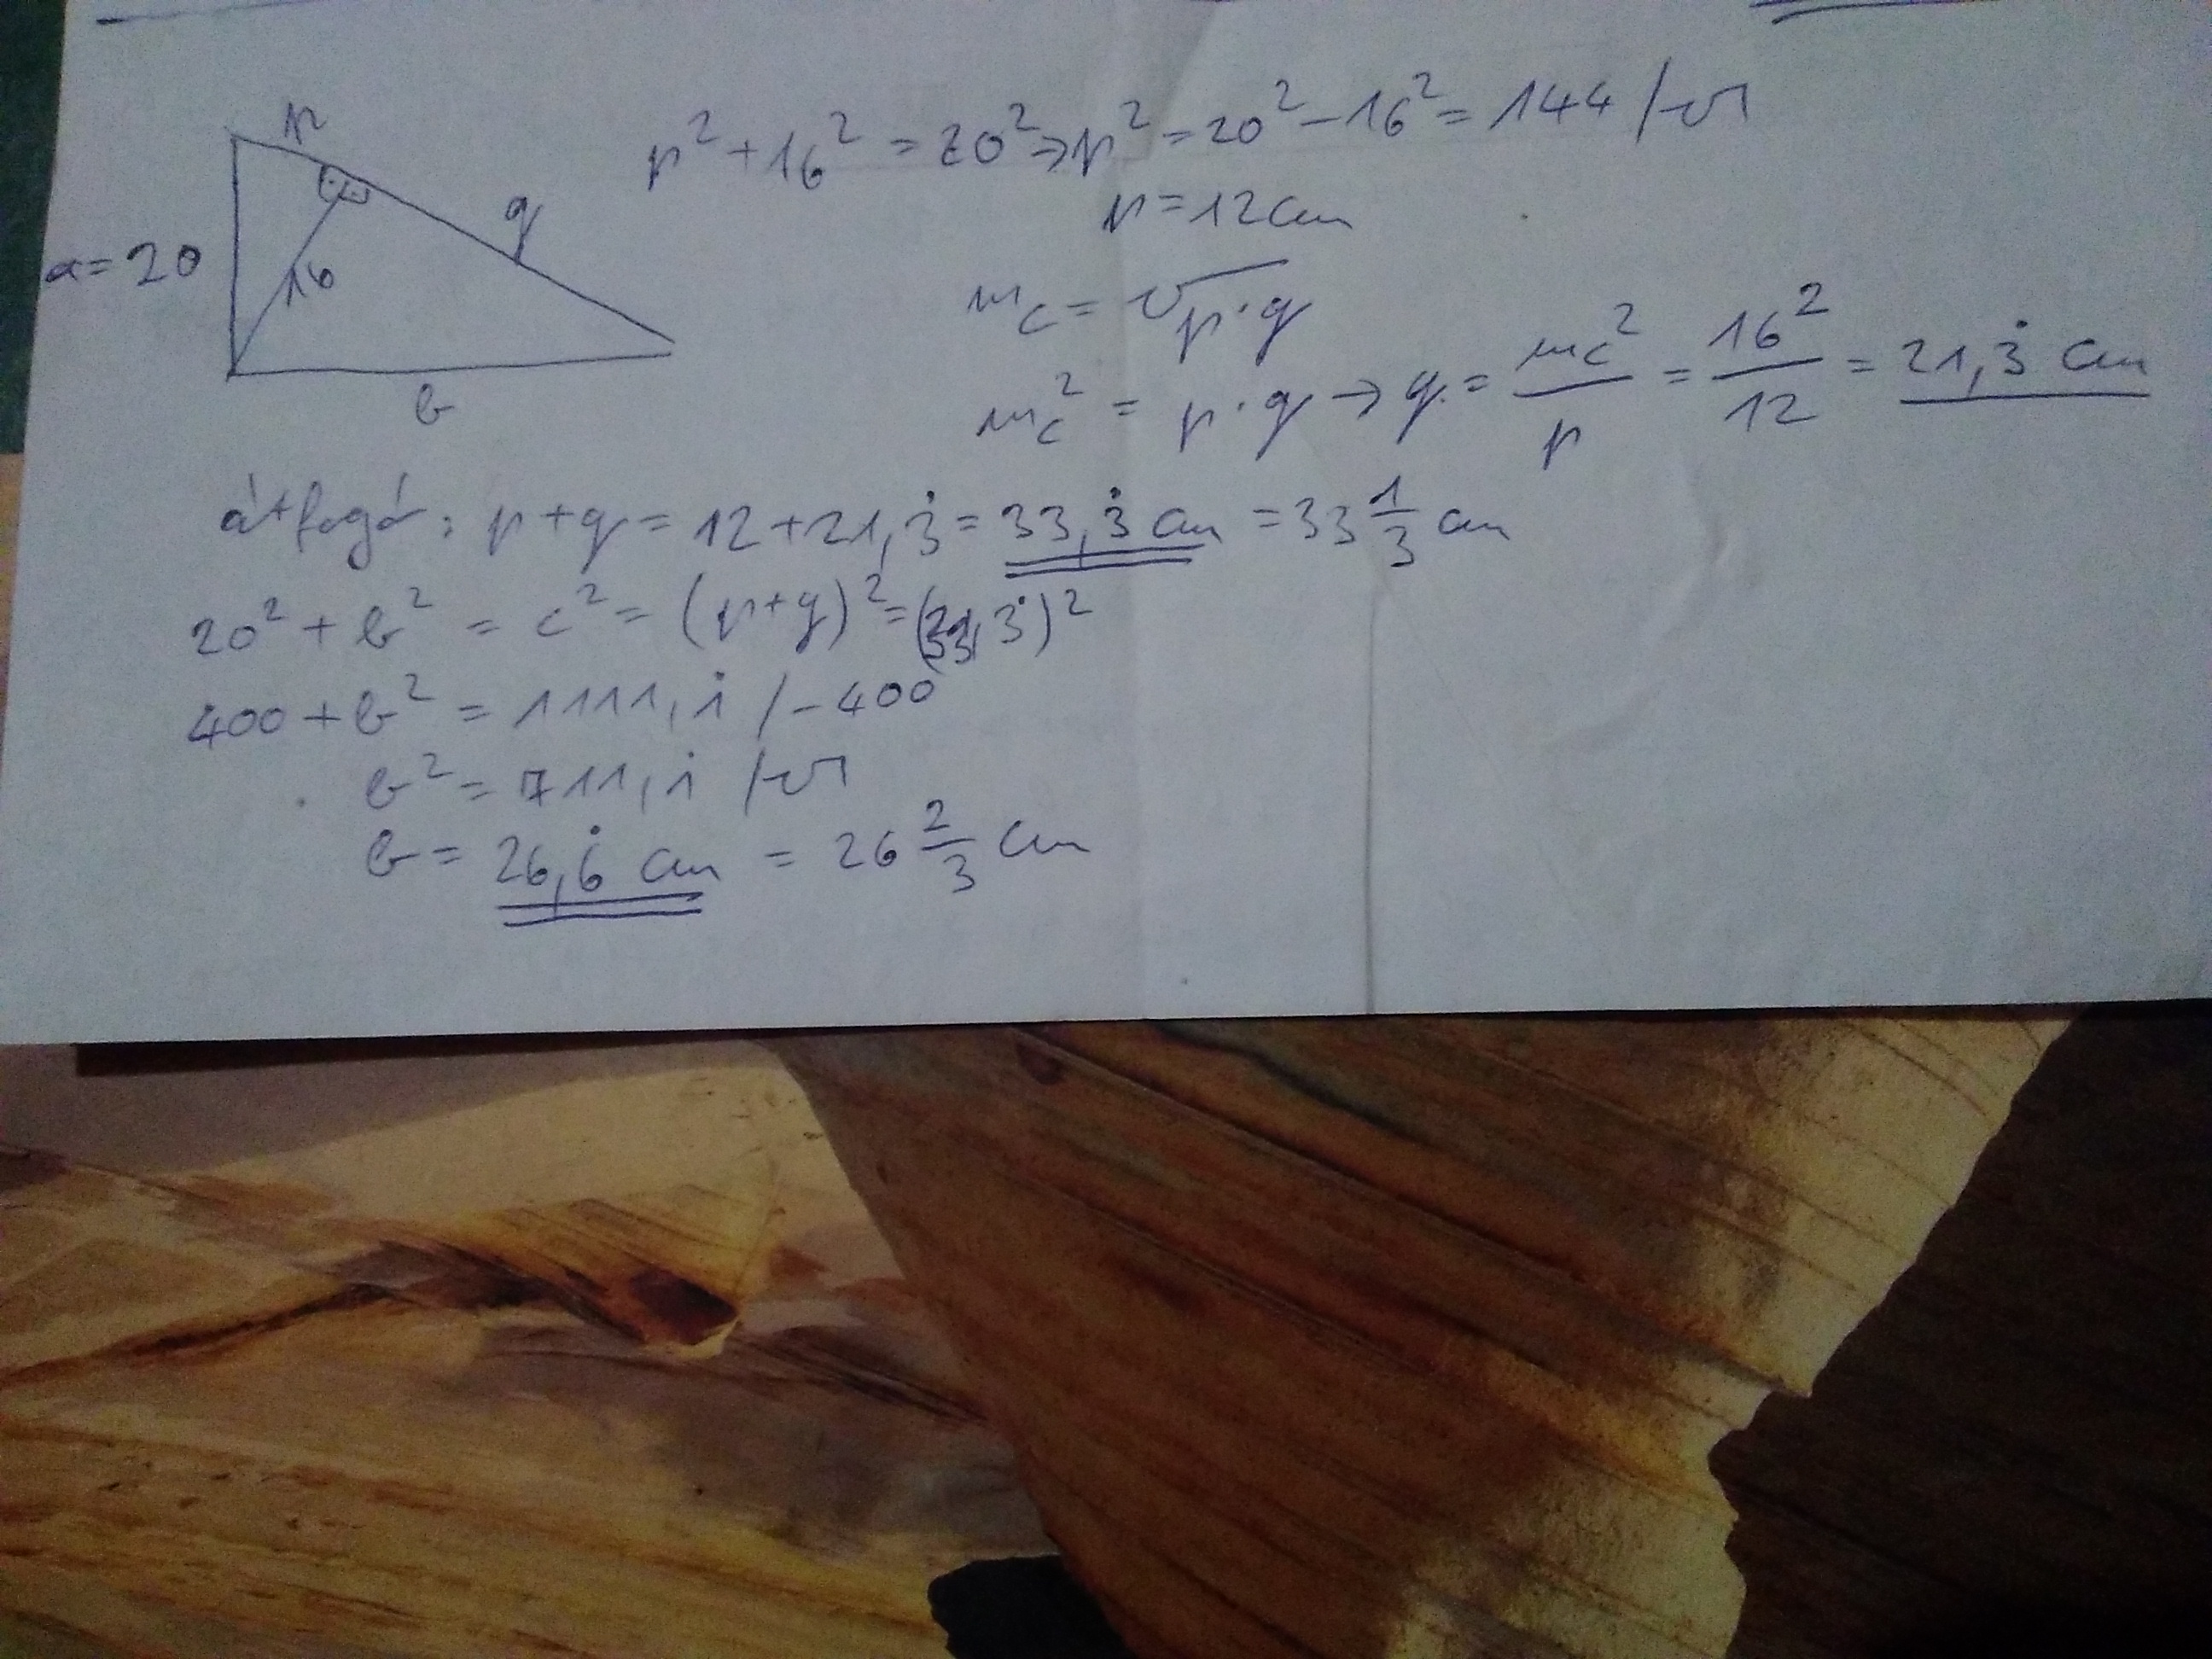 p
q
a = 20
16
b
p² + 16² = 20² ⇒ p² = 20² − 16² = 144 /√
p = 12 cm
m_c = √p·q
m_c² = p·q → q = m_c²/p = 16²/12 = 21,3̇ cm
átfogó: p + q = 12 + 21,3̇ = 33,3̇ cm = 33 1/3 cm
20² + b² = c² = (p+q)² = (33,3̇)²
400 + b² = 1111,1̇ /−400
b² = 711,1̇ /√
b = 26,6̇ cm = 26 2/3 cm